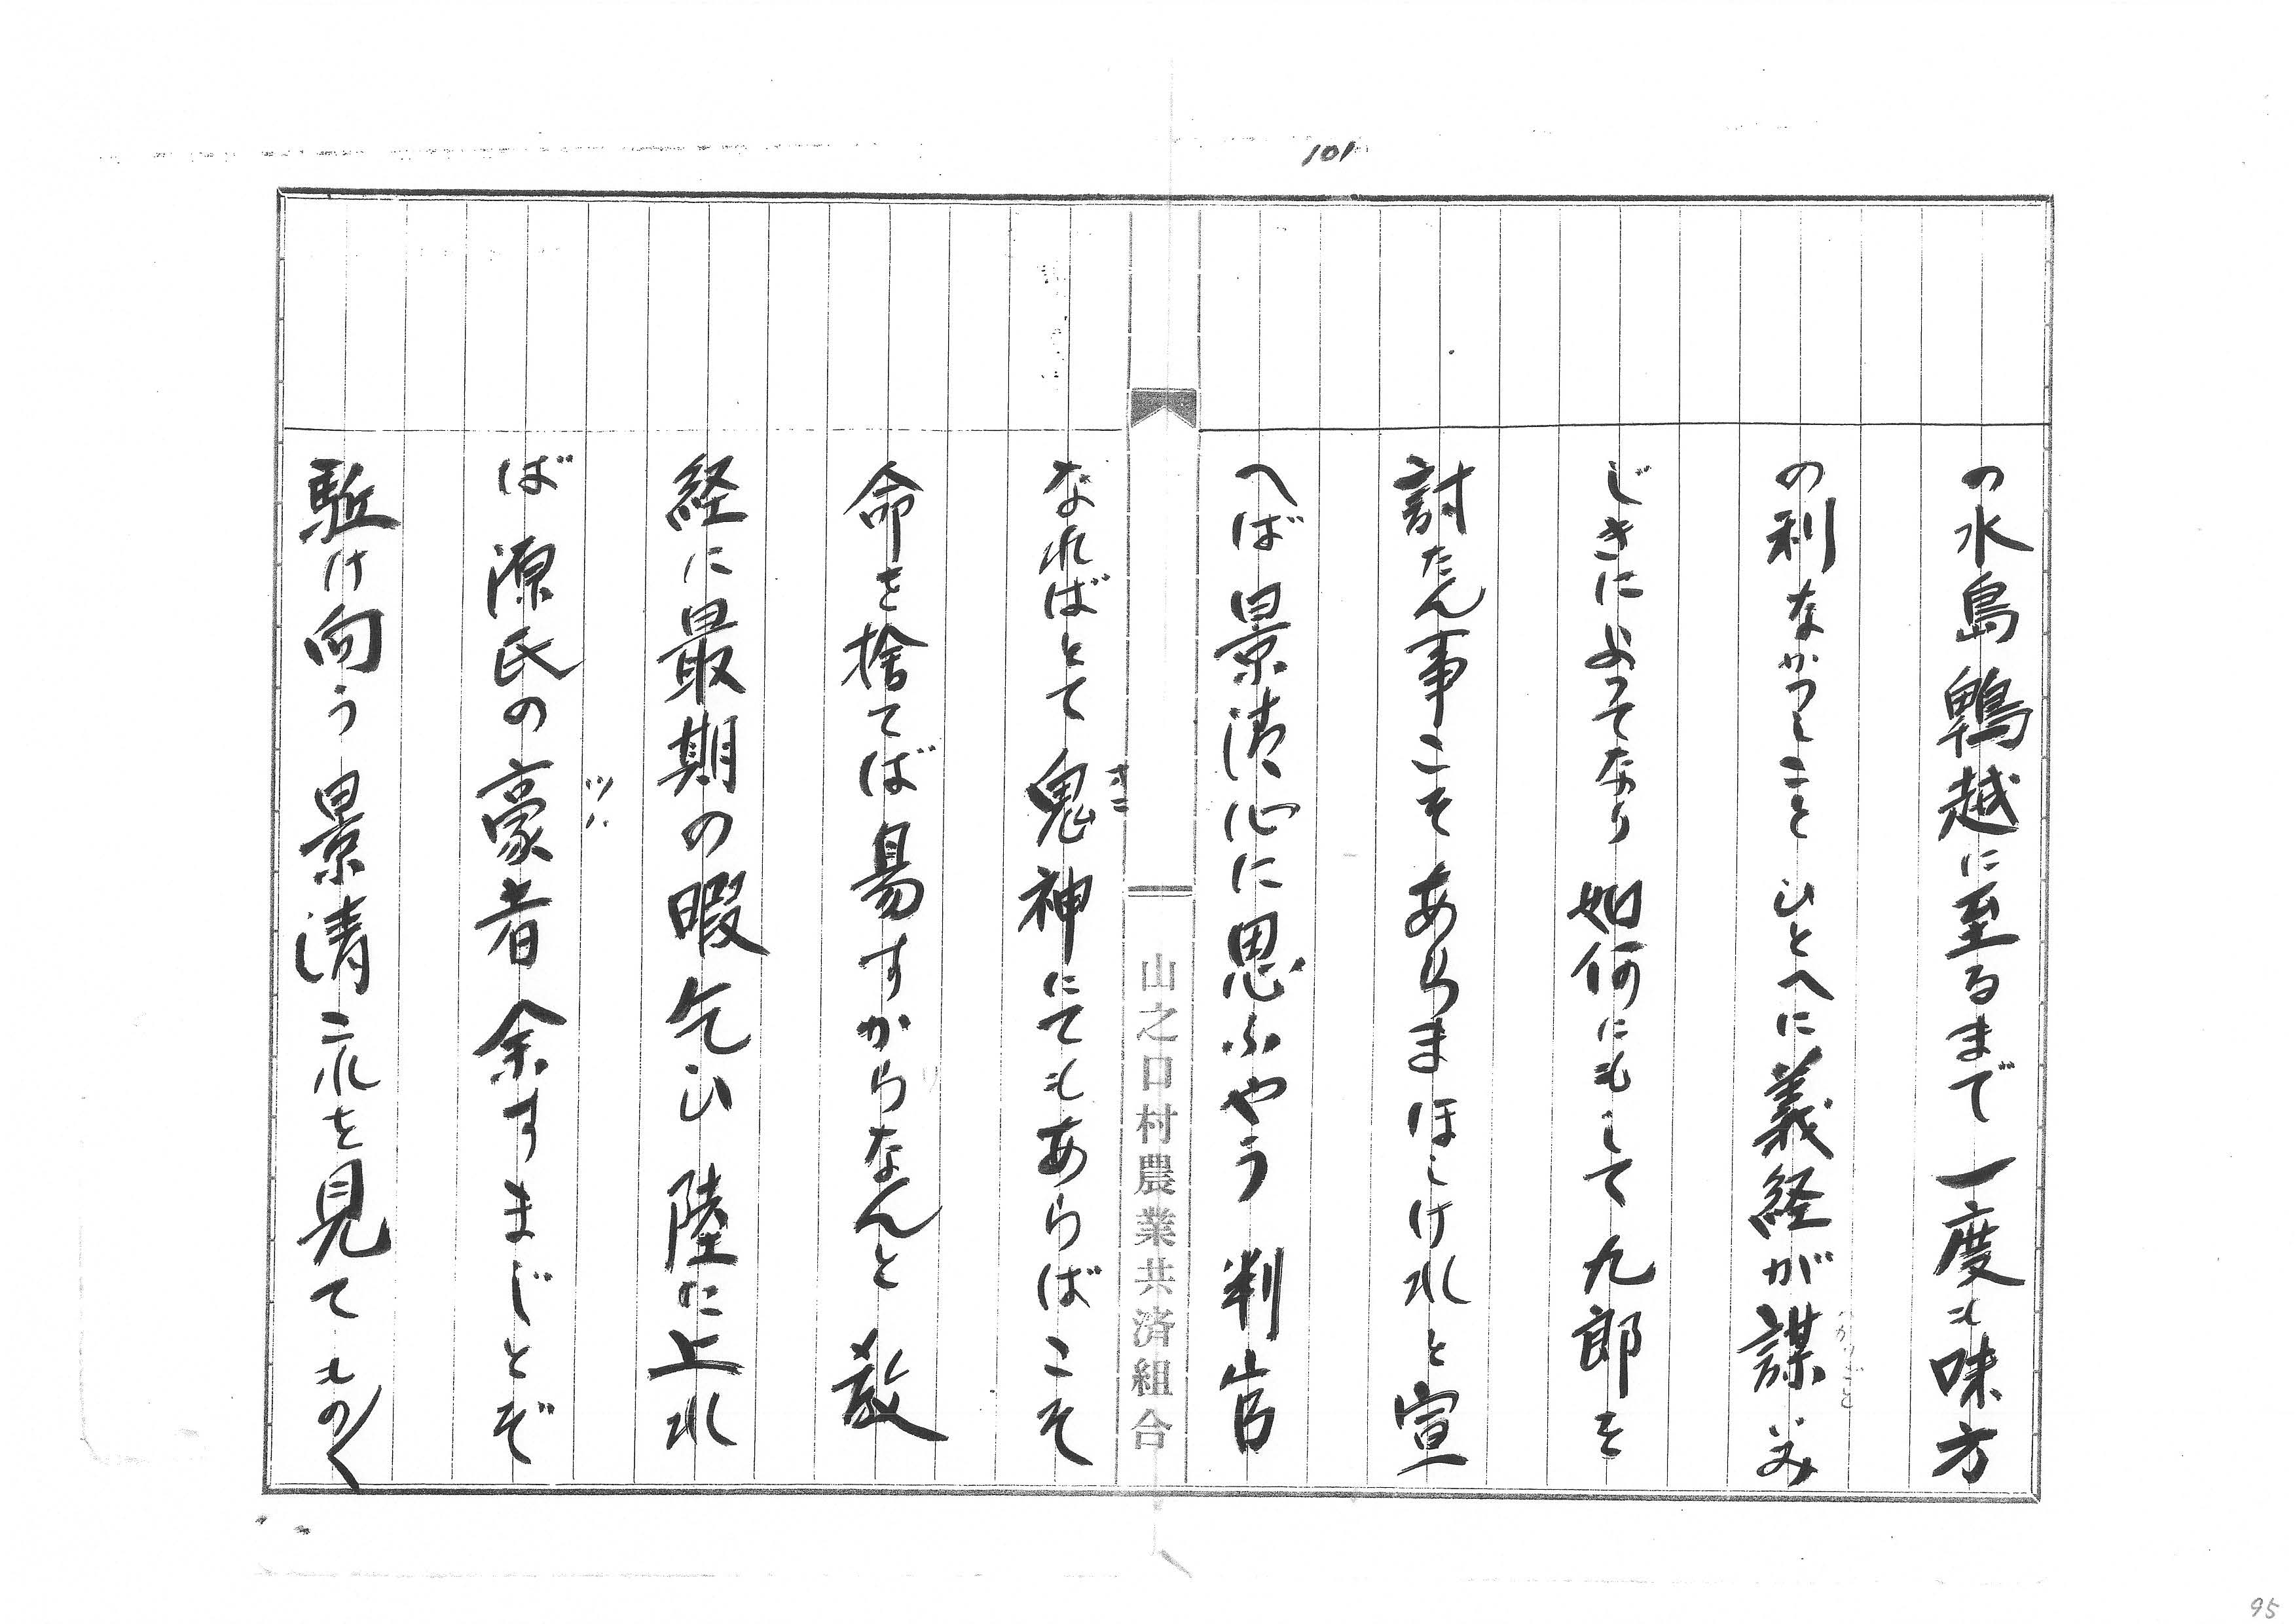 101
の水島鵯越に至るまで 一度も味方
の利なかつしこと ひとへに義経が謀いみ
じきによつてなり 如何にもして九郎を
討たん事こそあらまほしけれと宣
へば 景清心に思ふやう 判官
なればとて鬼神にてもあらばこそ
オニ
命を捨てば易すからなんと 教
経に最期の暇乞ひ 陸に上れ
ば 源氏の豪者余すまじとぞ
ツハ
駈け向う 景清これを見てもの〱
山之口村農業共済組合
95